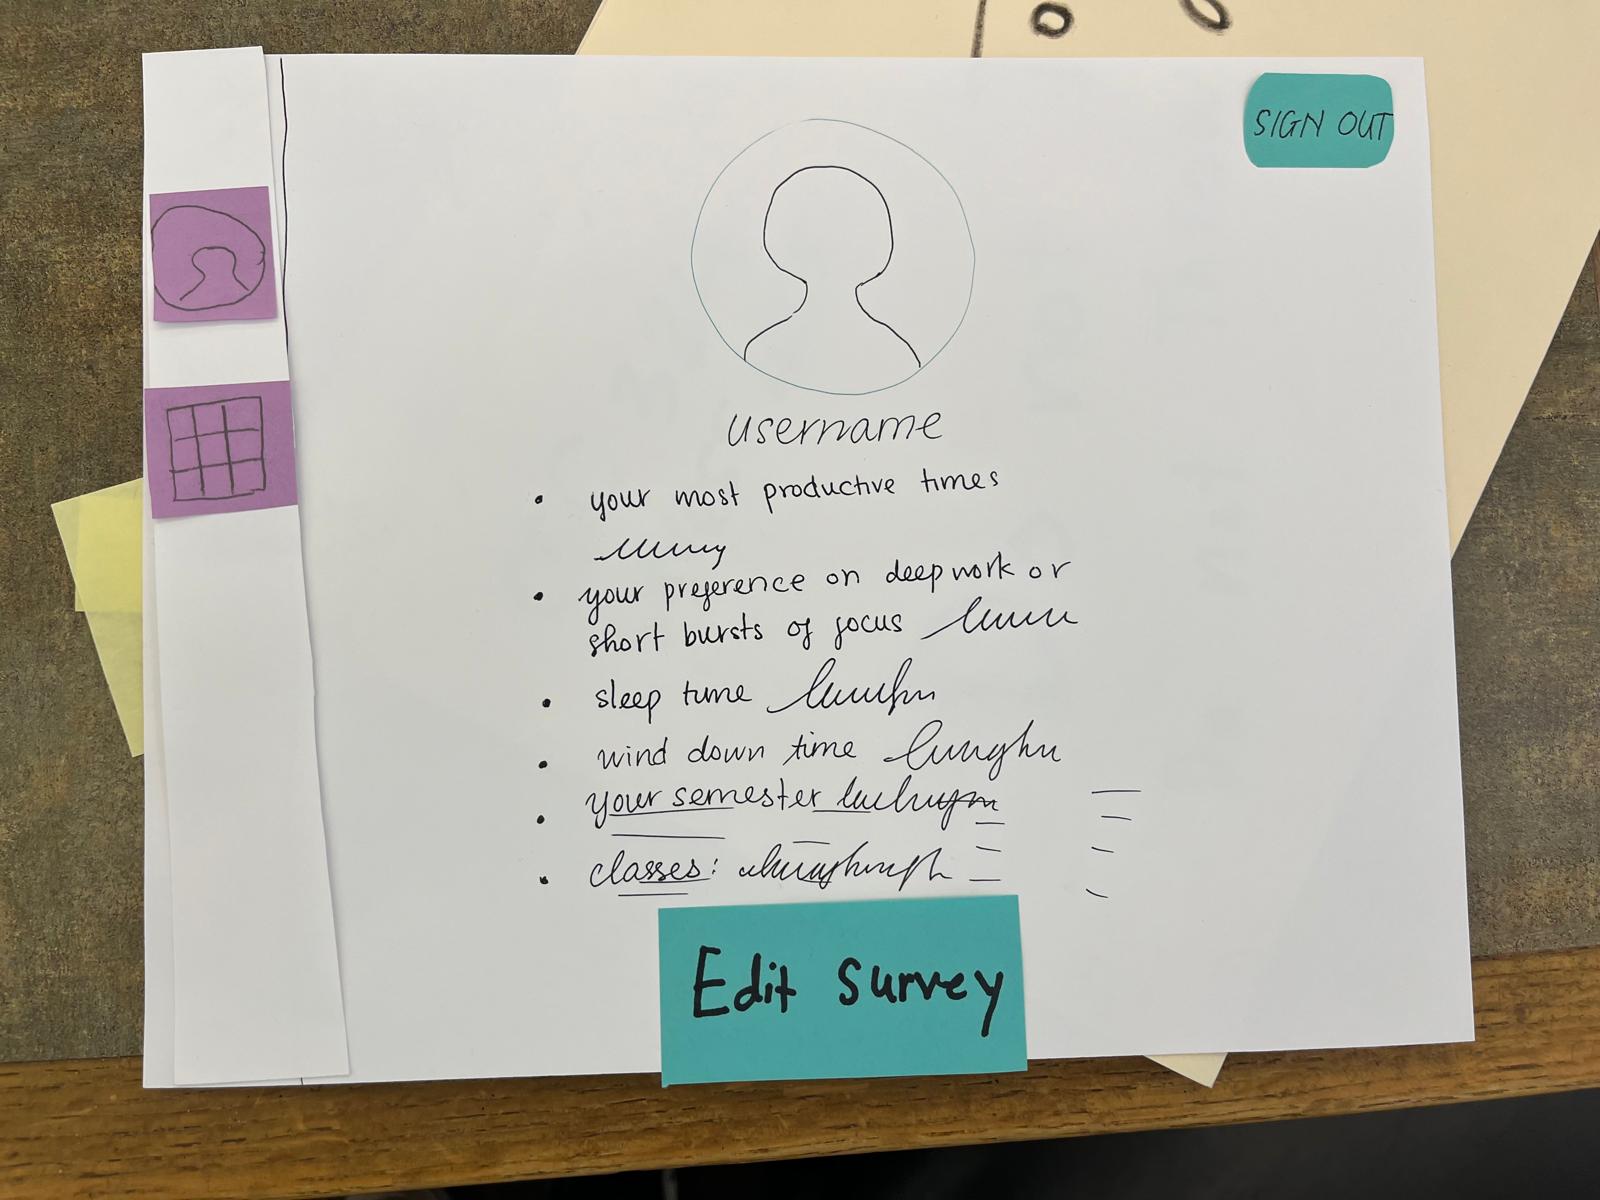 SIGN OUT
username
• your most productive times
• your preference on deep work or
short bursts of focus
• sleep time
• wind down time
• your semester
• classes:
Edit Survey